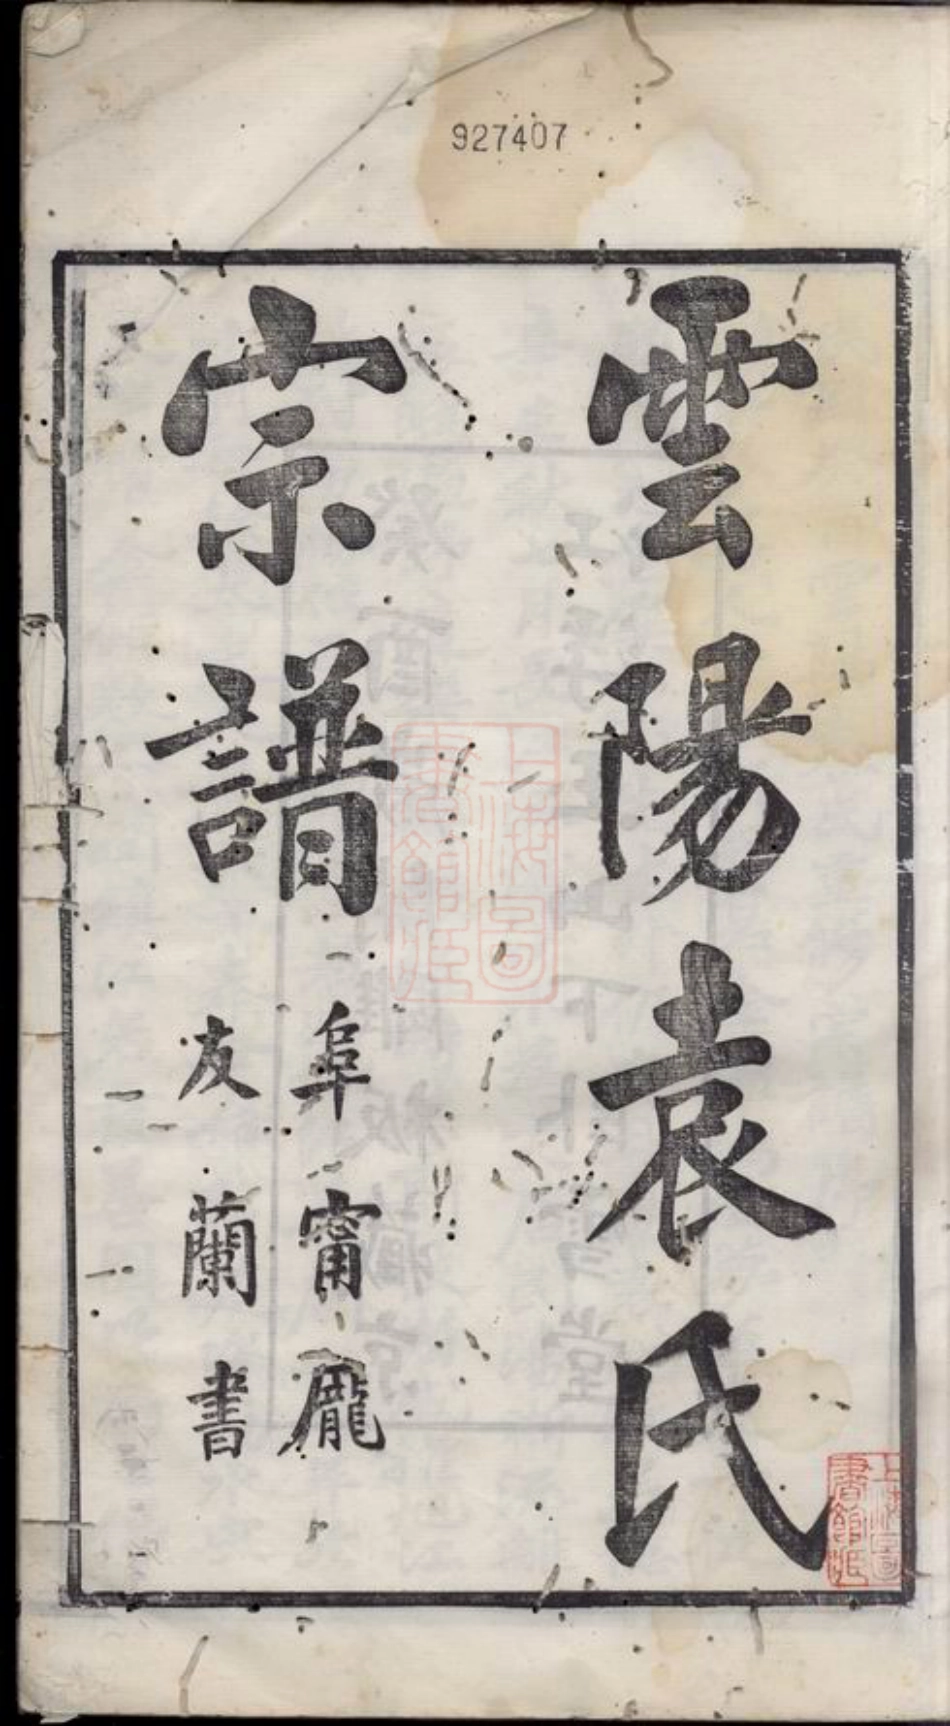 927407
雲陽袁氏
宗譜
阜甯龎
友蘭書
上海圖
書館藏
上海圖
書館藏